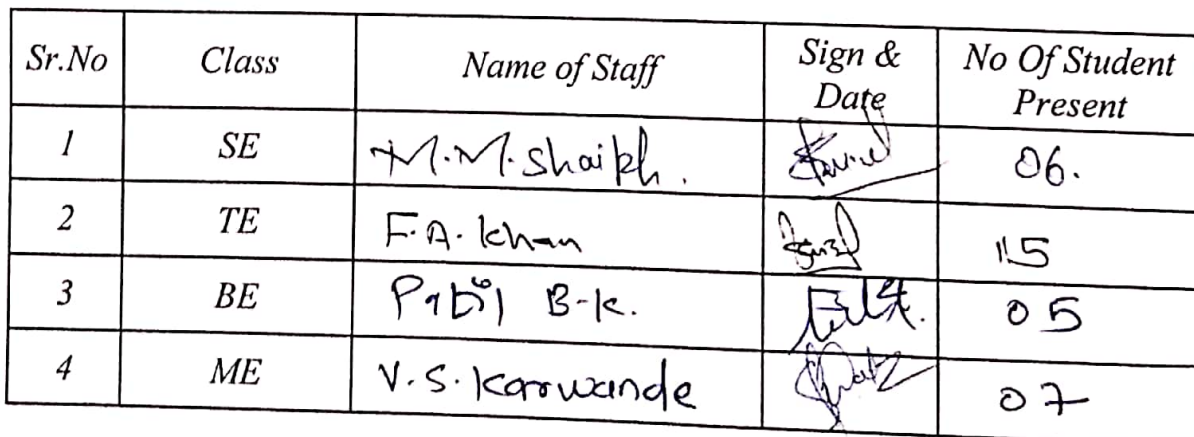 Sr.No Class Name of Staff Sign & Date No Of Student Present
1 SE M.M.Shaikh. 06.
2 TE F.A. Khan 15
3 BE Patil B-K. 05
4 ME V.S. Karwande 07